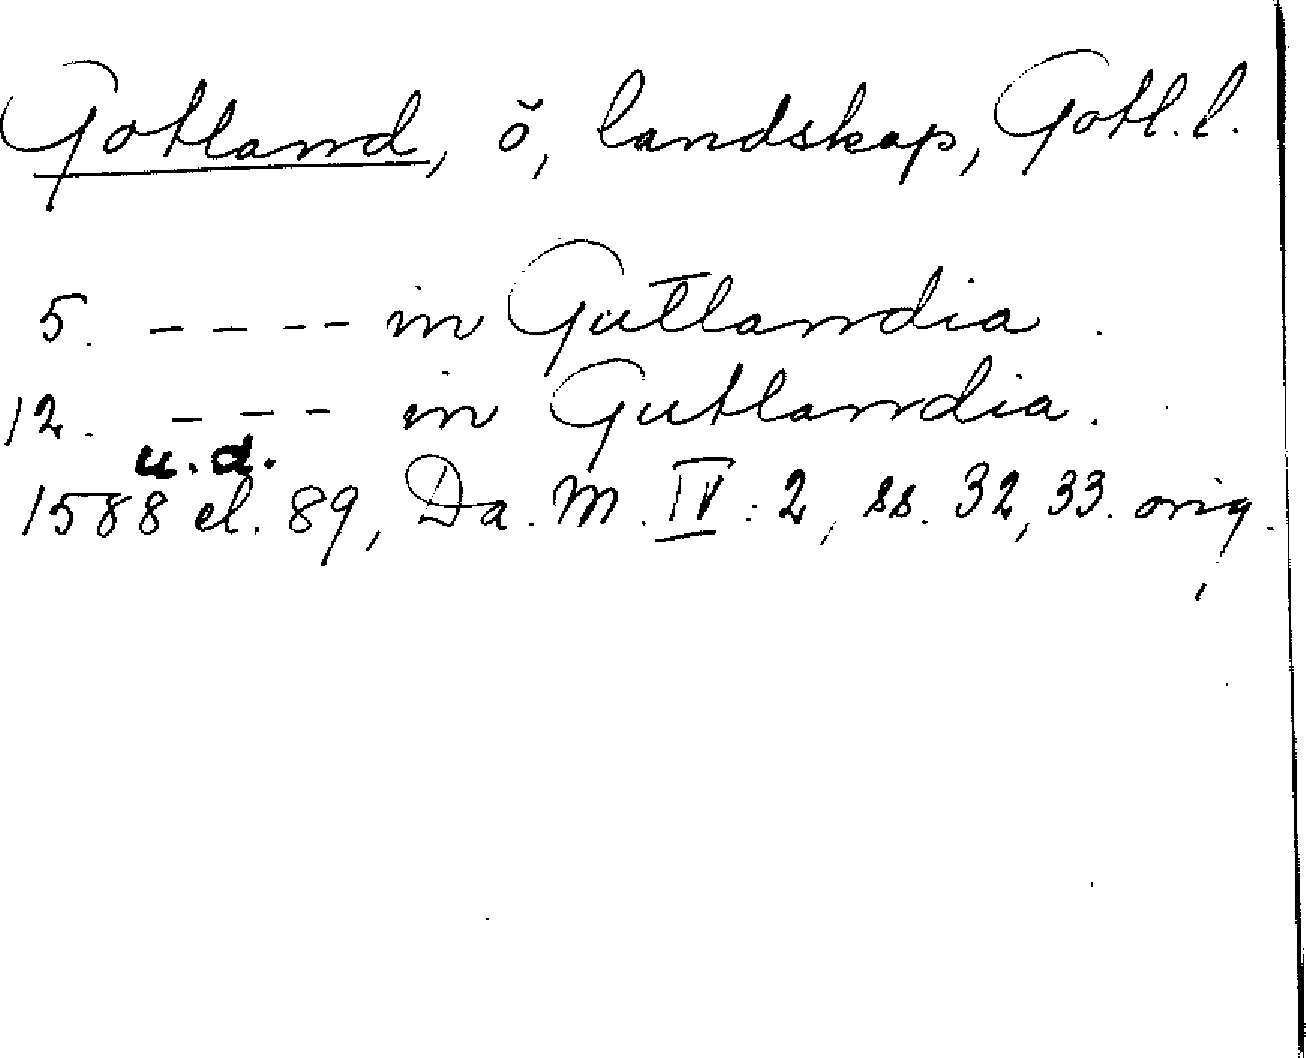 Gotland, ö, landskap, Gotl. l.
5. ---- in Gutlandia.
12. --- in Gutlandia.
u.d.
1588 el. 89, Da. M. IV: 2, ss. 32, 33. orig.